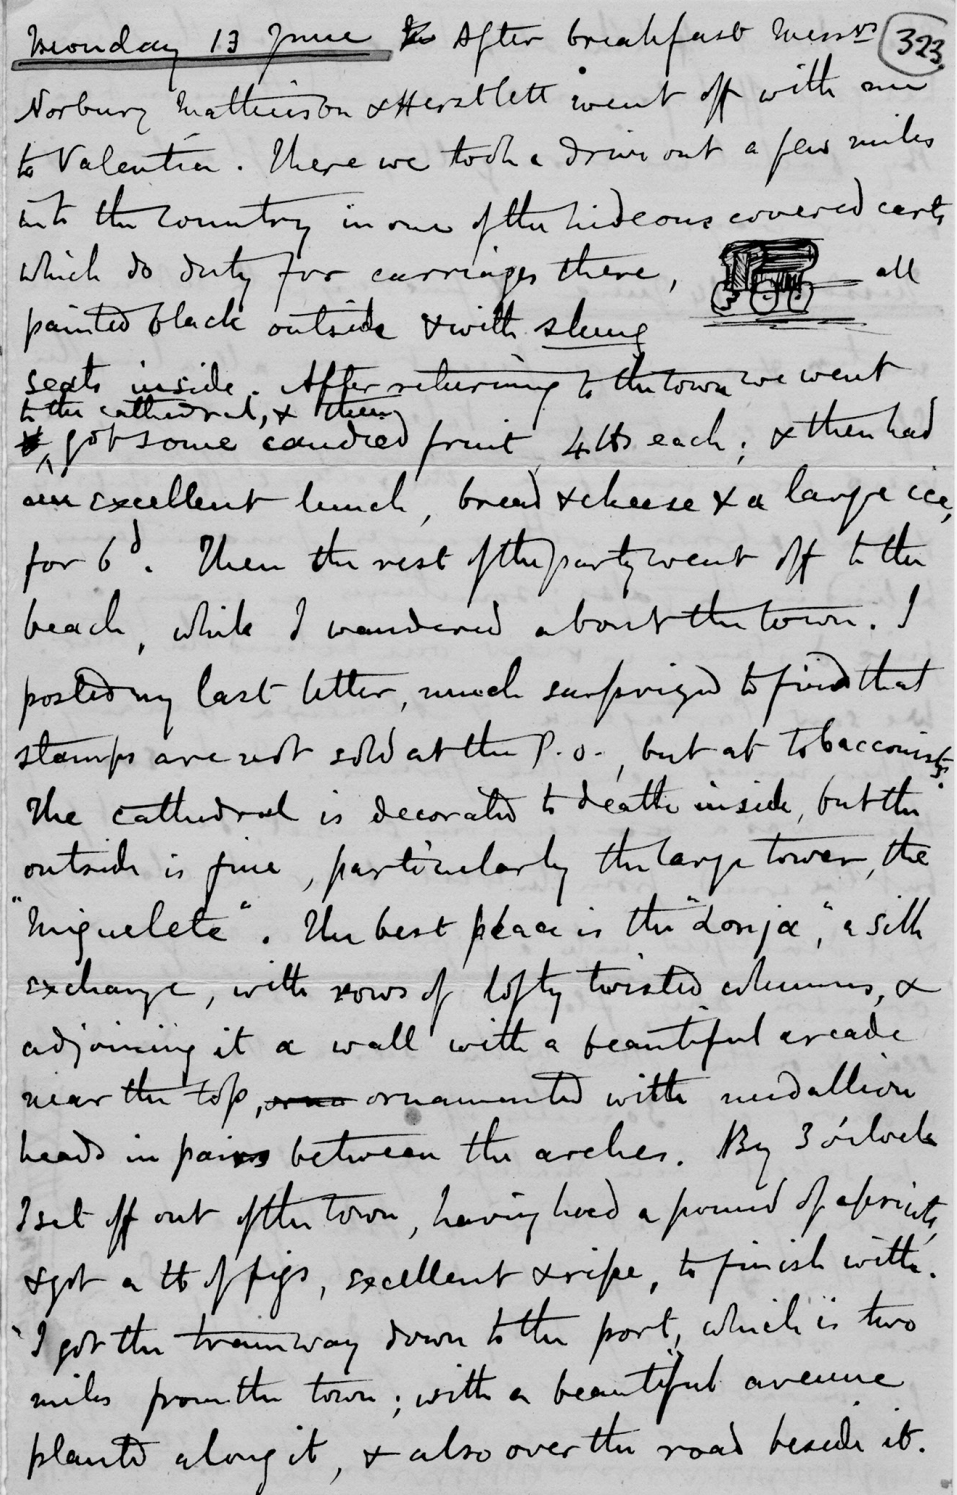 Monday 13 June After breakfast Messrs 323
Norbury Mathieson & Herstlett went off with me
to Valentia. There we took a drive out a few miles
into the country in one of the hideous covered carts
which do duty for carriages there, all
painted black outside & with slung
seats inside. After returning to the town we went
to the cathedral, & then
got some candied fruit 4 lbs each; & then had
an excellent lunch, bread & cheese & a large ice,
for 6d. Then the rest of the party went off to the
beach, while I wandered about the town. I
posted my last letter, much surprized to find that
stamps are not sold at the P.O., but at tobacconists.
The cathedral is decorated to death inside, but the
outside is fine, particularly the large tower, the
"Miguelete". The best place is the "Lonja", a silk
exchange, with rows of lofty twisted columns, &
adjoining it a wall with a beautiful arcade
near the top, orna ornamented with medallion
heads in pairs between the arches. By 3 o'clock
I set off out of the town, having had a pound of apricots,
& got a lb of figs, excellent & ripe, to finish with.
I got the tramway down to the port, which is two
miles from the town; with a beautiful avenue
planted along it, & also over the road beside it.